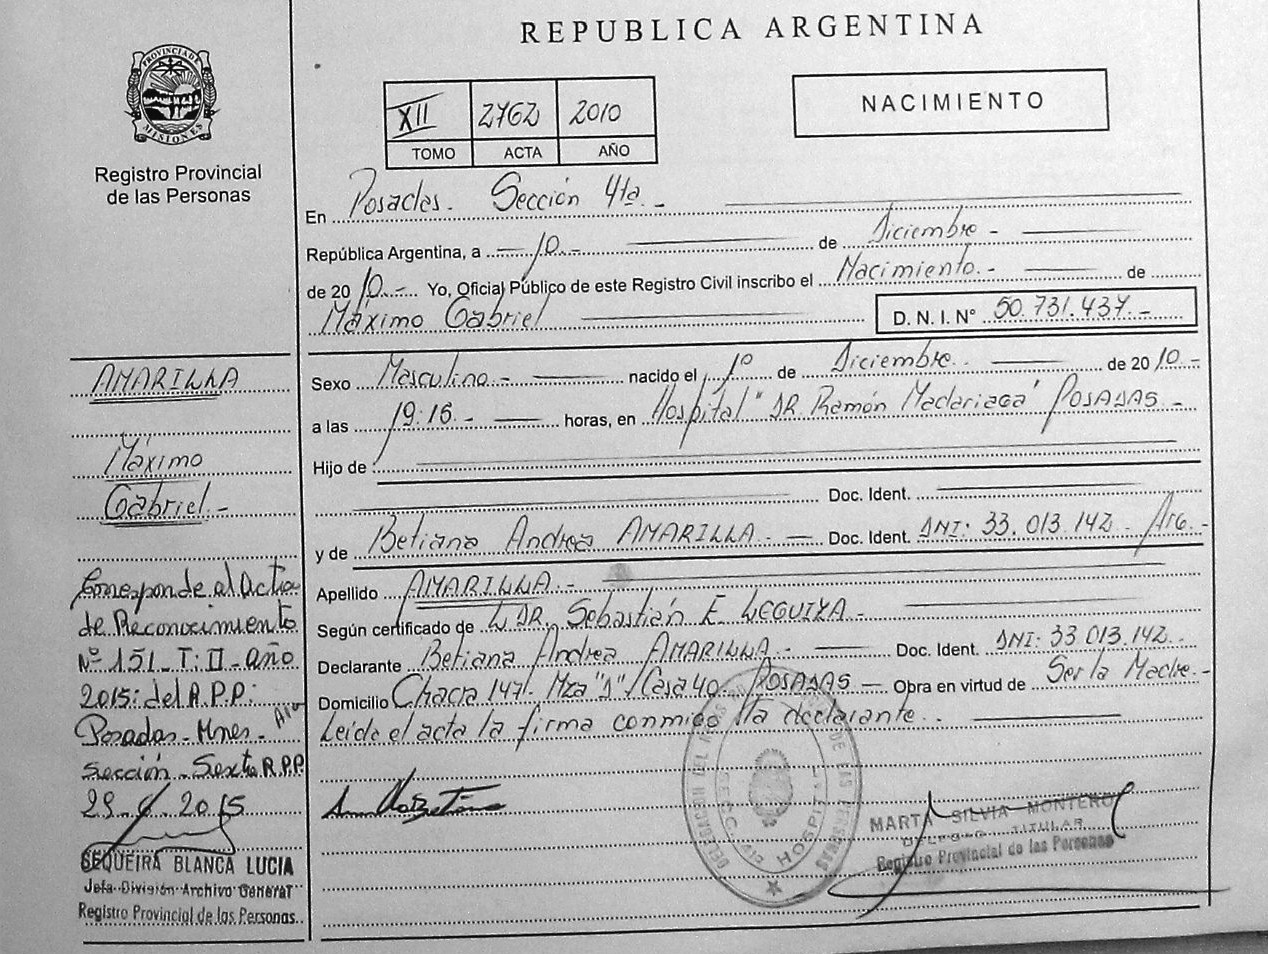 REPUBLICA ARGENTINA
PROVINCIA DE MISIONES
Registro Provincial
de las Personas
XII 2762 2010
TOMO ACTA AÑO
NACIMIENTO
En Posadas. Sección 4ta.-
República Argentina, a 10.- de Diciembre -
de 2010.- Yo, Oficial Público de este Registro Civil inscribo el Nacimiento.- de
Máximo Gabriel D. N. I. N° 50.731.437.-
Sexo Masculino.- nacido el 1° de Diciembre. de 2010.-
a las 19:16.- horas, en Hospital "DR. Ramón Madariaga" POSADAS -
Hijo de
Doc. Ident.
y de Betiana Andrea AMARILLA.- Doc. Ident. DNI: 33.013.142.- Arg.-
Apellido AMARILLA.-
Según certificado de DR. Sebastián E. LEGUIZA.-
Declarante Betiana Andrea AMARILLA.- Doc. Ident. DNI: 33.013.142.-
Domicilio Chacra 147/ Mza "D"/ Casa 40. POSADAS - Obra en virtud de Ser la Madre.-
Leída el acta la firma conmigo la declarante.
AMARILLA
Máximo
Gabriel.-
Corresponde al Acta
de Reconocimiento
Nº 151 - T: II - año
2015: del R.P.P:
Posadas - Mnes -
Sección - Sexta R.P.P
2015
SEQUEIRA BLANCA LUCIA
Jefa División Archivo General
Registro Provincial de las Personas
SECC. 4ta HOSPITAL
MARTA SILVIA MONTERO
DELEGADA TITULAR
Registro Provincial de las Personas